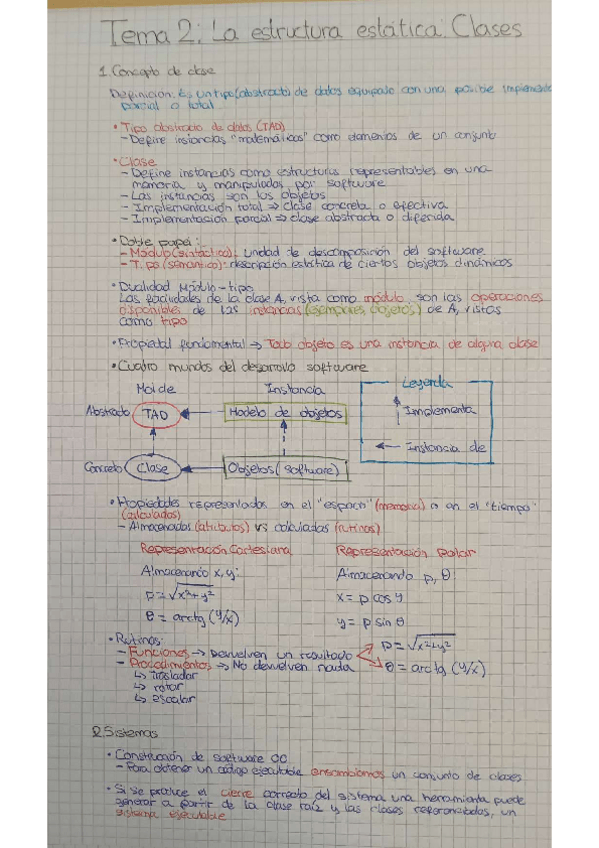 Tema 2: La estructura estática: Clases
1. Concepto de clase
Definición: Es un tipo (abstracto) de datos equipado con una posible implementa
parcial o total
• Tipo abstracto de datos (TAD)
- Define instancias "matemáticas" como elementos de un conjunto
• Clase
- Define instancias como estructuras representables en una
memoria y manipulados por software
- Las instancias son los objetos
- Implementación total ⇒ clase concreta o efectiva
- Implementación parcial ⇒ clase abstracta o diferida
• Doble papel:
- Módulo (sintáctico): unidad de descomposición del software
- Tipo (semántico): descripción estática de ciertos objetos dinámicos
• Dualidad Módulo-tipo
Las facilidades de la clase A, vista como módulo, son las operaciones
disponibles de las instancias (ejemplares, objetos) de A, vistas
como tipo
• Propiedad fundamental → Todo objeto es una instancia de alguna clase
• Cuatro mundos del desarrollo software
Molde Instancia Leyenda
Abstracto TAD Modelo de objetos Implementa
Instancia de
Concreto Clase Objetos (software)
• Propiedades representadas en el "espacio" (memoria) o en el "tiempo"
(calculados)
- Almacenados (atributos) vs calculadas (rutinas)
Representación Cartesiana Representación polar
Almacenando x, y: Almacenando p, θ:
p = √x²+y² x = p cos y
θ = arctg (y/x) y = p sin θ
• Rutinas:
- Funciones → Devuelven un resultado p = √x²+y²
- Procedimientos → No devuelven nada θ = arctg (y/x)
↳ trasladar
↳ rotar
↳ escalar
2. Sistemas
• Construcción de software OO
- Para obtener un código ejecutable ensamblamos un conjunto de clases
• Si se produce el cierre correcto del sistema una herramienta puede
generar a partir de la clase raíz y las clases referenciadas, un
sistema ejecutable